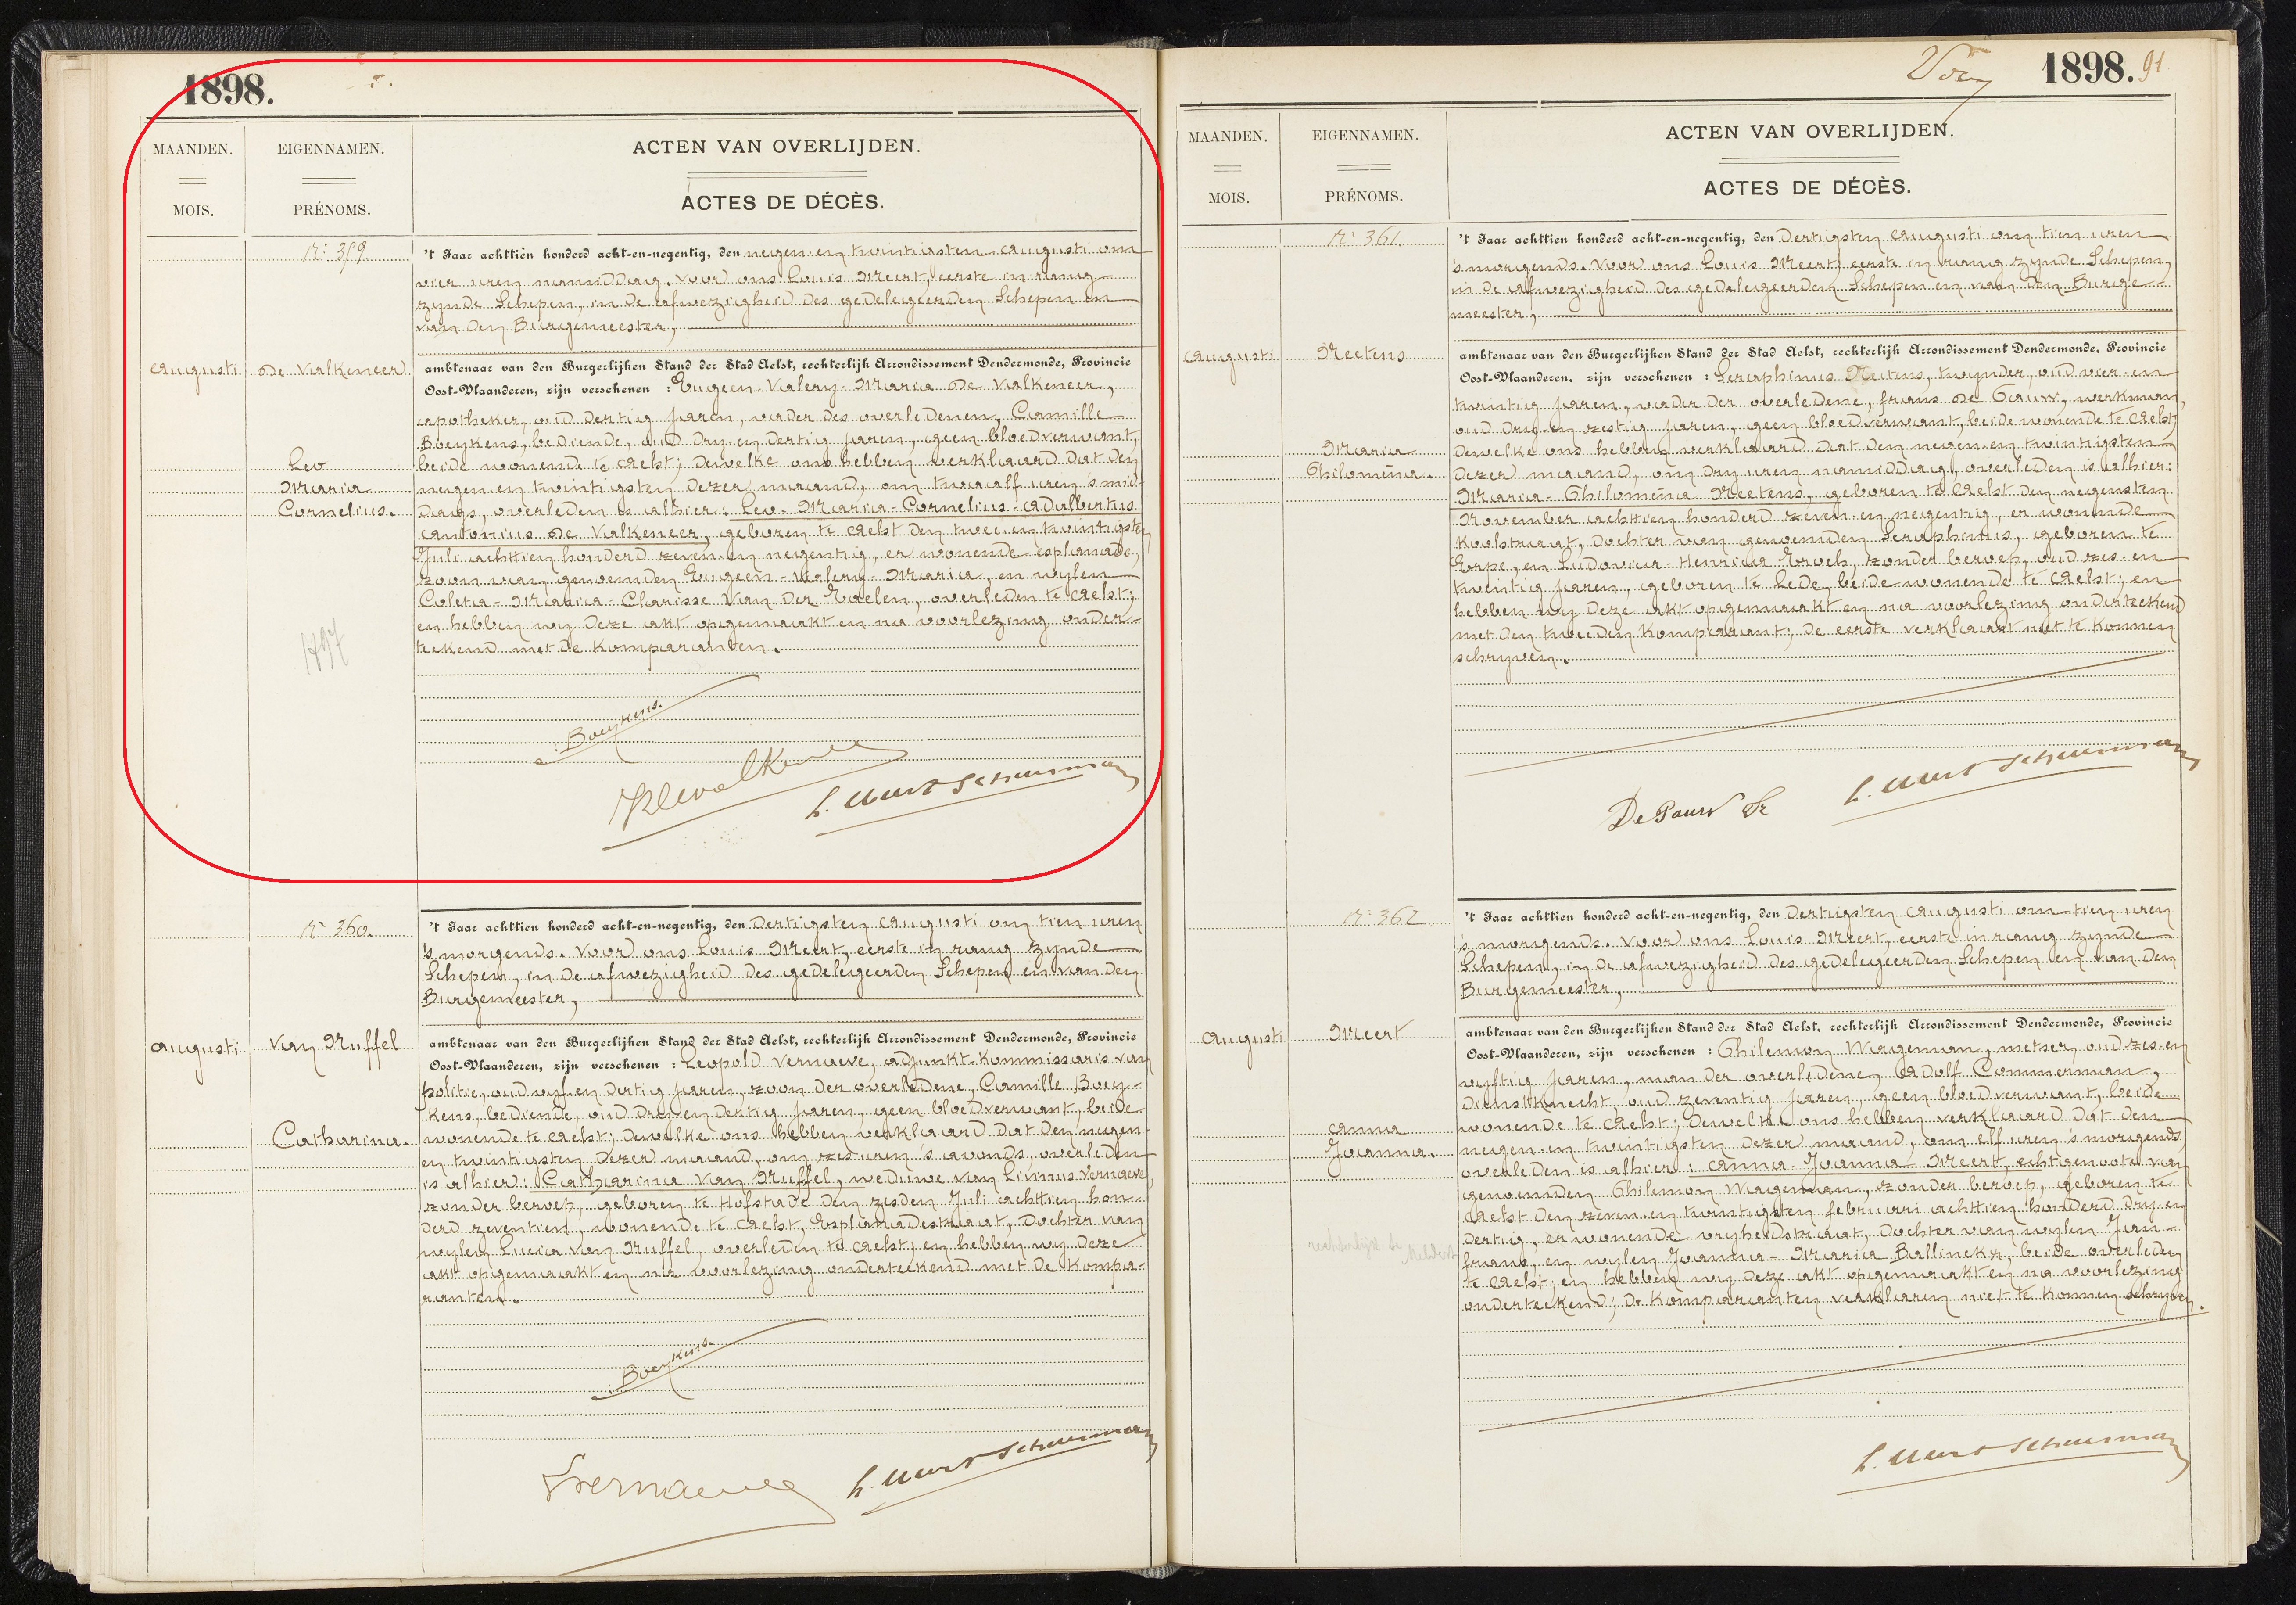 1898.
MAANDEN.
MOIS.
EIGENNAMEN.
PRÉNOMS.
ACTEN VAN OVERLIJDEN.
ACTES DE DÉCÈS.
N: 359.
't Jaar achttien honderd acht-en-negentig, den negen-en twintigsten augusti om
vier uren namiddag. Voor ons Louis Meert, eerste in rang
zynde Schepen, in de afwezigheid des gedelegeerden Schepen en
van den Burgemeester,
augusti
De Valkeneer
Leo
Maria
Cornelius.
ambtenaar van den Burgerlijken Stand der Stad Aelst, rechterlijk Arrondissement Dendermonde, Provincie
Oost-Vlaanderen, zijn verschenen : Eugeen-Valery-Maria De Valkeneer,
apotheker, oud dertig jaren, vader des overledenen, Camille
Boeykens, bediende, oud dry en dertig jaren, geen bloedverwant,
beide wonende te Aelst; dewelke ons hebben verklaard dat den
negen en twintigsten dezer maand, om twaalf uren 's mid-
dags, overleden is alhier: Leo-Maria-Cornelius-Adalbertus
Antonius De Valkeneer, geboren te Aelst den twee en twintigsten
Juli achttien honderd zeven en negentig, er wonende esplanade,
zoon van genoemden Eugeen-Valery-Maria, en wylen
Coleta-Maria-Clarisse Van der Eoelen, overleden te Aelst;
en hebben wy deze akt opgemaakt en na voorlezing onder-
teekend met de komparanten.
1897
Boeykens.
L. Meert Scheurman
N: 360.
't Jaar achttien honderd acht-en-negentig, den Dertigsten augusti om tien uren
's morgends. Voor ons Louis Meert, eerste in rang zynde
Schepen, in de afwezigheid des gedelegeerden Schepen en van den
Burgemeester,
augusti
Van Nuffel
Catharina.
ambtenaar van den Burgerlijken Stand der Stad Aelst, rechterlijk Arrondissement Dendermonde, Provincie
Oost-Vlaanderen, zijn verschenen : Leopold Vernaeve, adjunkt-kommissaris van
politie, oud vyf en dertig jaren, zoon der overledene, Camille Boey-
kens, bediende, oud dry en dertig jaren, geen bloedverwant, beide
wonende te Aelst; dewelke ons hebben verklaard dat den negen
en twintigsten dezer maand, om zes uren 's avonds, overleden
is alhier: Catharina Van Nuffel, weduwe van Livinus Vernaeve,
zonder beroep, geboren te Hofstade den zesden Juli achttien hon-
derd zeventien, wonende te Aelst, Esplanadestraat, dochter van
wylen Lucia Van Nuffel, overleden te Aelst; en hebben wy deze
akt opgemaakt en na voorlezing onderteekend met de kompa-
ranten.
Boeykens.
Vernaeve
L. Meert Scheurman
1898.
91
MAANDEN.
MOIS.
EIGENNAMEN.
PRÉNOMS.
ACTEN VAN OVERLIJDEN.
ACTES DE DÉCÈS.
N: 361.
't Jaar achttien honderd acht-en-negentig, den Dertigsten augusti om tien uren
's morgends. Voor ons Louis Meert, eerste in rang zynde Schepen,
in de afwezigheid des gedelegeerden Schepen en van den Burge-
meester,
augusti
Meetens
Maria
Philomena.
ambtenaar van den Burgerlijken Stand der Stad Aelst, rechterlijk Arrondissement Dendermonde, Provincie
Oost-Vlaanderen, zijn verschenen : Seraphinus Meetens, twynder, oud vier en
twintig jaren, vader der overledene, frans De Gauw, werkman,
oud dry en zestig jaren, geen bloedverwant, beide wonende te Aelst;
dewelke ons hebben verklaard dat den negen en twintigsten
dezer maand, om dry uren namiddag, overleden is alhier:
Maria-Philomena Meetens, geboren te Aelst den negensten
November achttien honderd zeven en negentig, er wonende
koolstraat, dochter van genoemden Seraphinus, geboren te
Erpe, en Ludovica Henrica Eroels, zonder beroep, oud zes en
twintig jaren, geboren te Lede, beide wonende te Aelst; en
hebben wy deze akt opgemaakt en na voorlezing onderteekend
met den tweeden komparant; de eerste verklaart niet te konnen
schryven.
L. Meert Scheurman
N: 362.
't Jaar achttien honderd acht-en-negentig, den Dertigsten augusti om tien uren
's morgends. Voor ons Louis Meert, eerste in rang zynde
Schepen, in de afwezigheid des gedelegeerden Schepen en van den
Burgemeester,
augusti
Meert
Anna
Joanna.
ambtenaar van den Burgerlijken Stand der Stad Aelst, rechterlijk Arrondissement Dendermonde, Provincie
Oost-Vlaanderen, zijn verschenen : Philemon Wageman, metser, oud zes en
vyftig jaren, man der overledene, Adolf Commerman,
dienstknecht, oud zeventig jaren, geen bloedverwant, beide
wonende te Aelst; dewelke ons hebben verklaard dat den
negen en twintigsten dezer maand, om elf uren 's morgends,
overleden is alhier: Anna-Joanna Meert, echtgenoote van
genoemden Philemon Wageman, zonder beroep, geboren te
Aelst den zeven en twintigsten februari achttien honderd dry en
dertig, er wonende vryheidstraat, dochter van wylen Jan-
frans, en wylen Joanna-Maria Ballinckx, beide overleden
te Aelst; en hebben wy deze akt opgemaakt en na voorlezing
onderteekend; de komparanten verklaren niet te konnen schryven.
L. Meert Scheurman